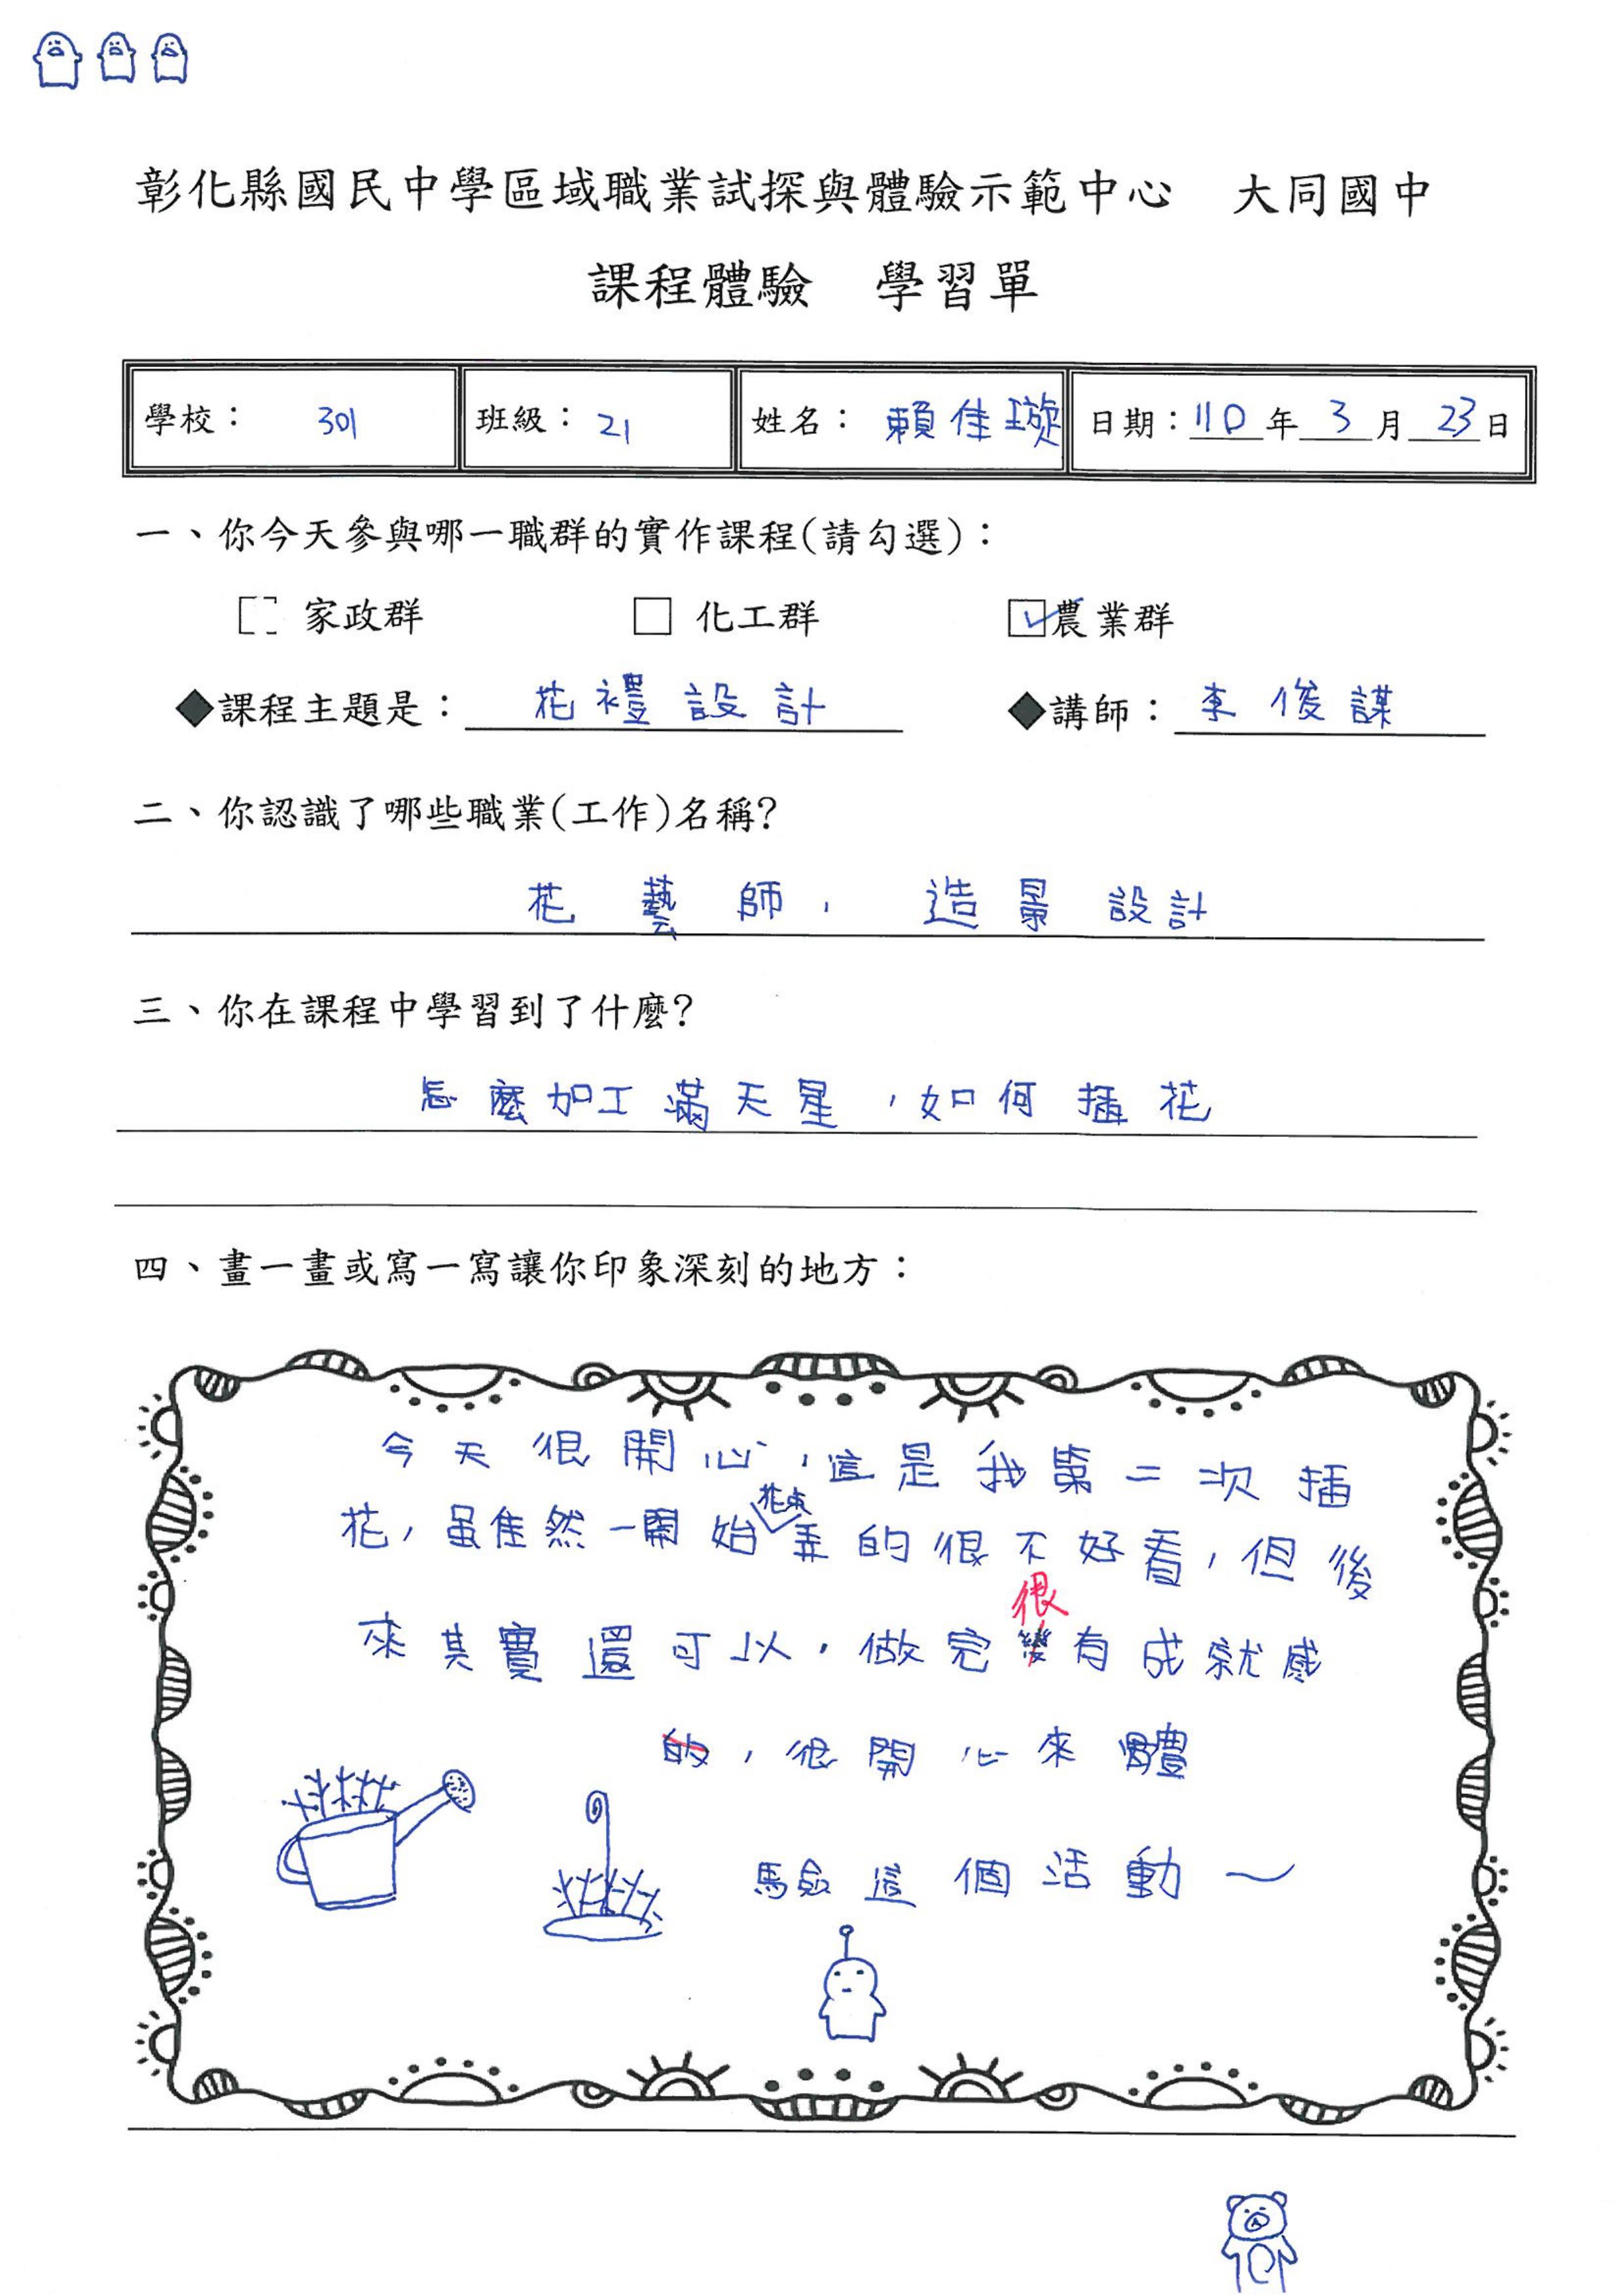 彰化縣國民中學區域職業試探與體驗示範中心　大同國中
課程體驗　學習單
學校：301 班級：21 姓名：賴佳璇 日期：110年3月23日
一、你今天參與哪一職群的實作課程(請勾選)：
家政群 □ 化工群 ☑農業群
◆課程主題是：花禮設計 ◆講師：李俊謀
二、你認識了哪些職業(工作)名稱?
花藝師，造景設計
三、你在課程中學習到了什麼?
怎麼加工滿天星，如何插花
四、畫一畫或寫一寫讓你印象深刻的地方：
今天很開心，這是我第二次插
花，雖然一開始花束弄的很不好看，但後
來其實還可以，做完很有成就感
的，很開心來體
驗這個活動～